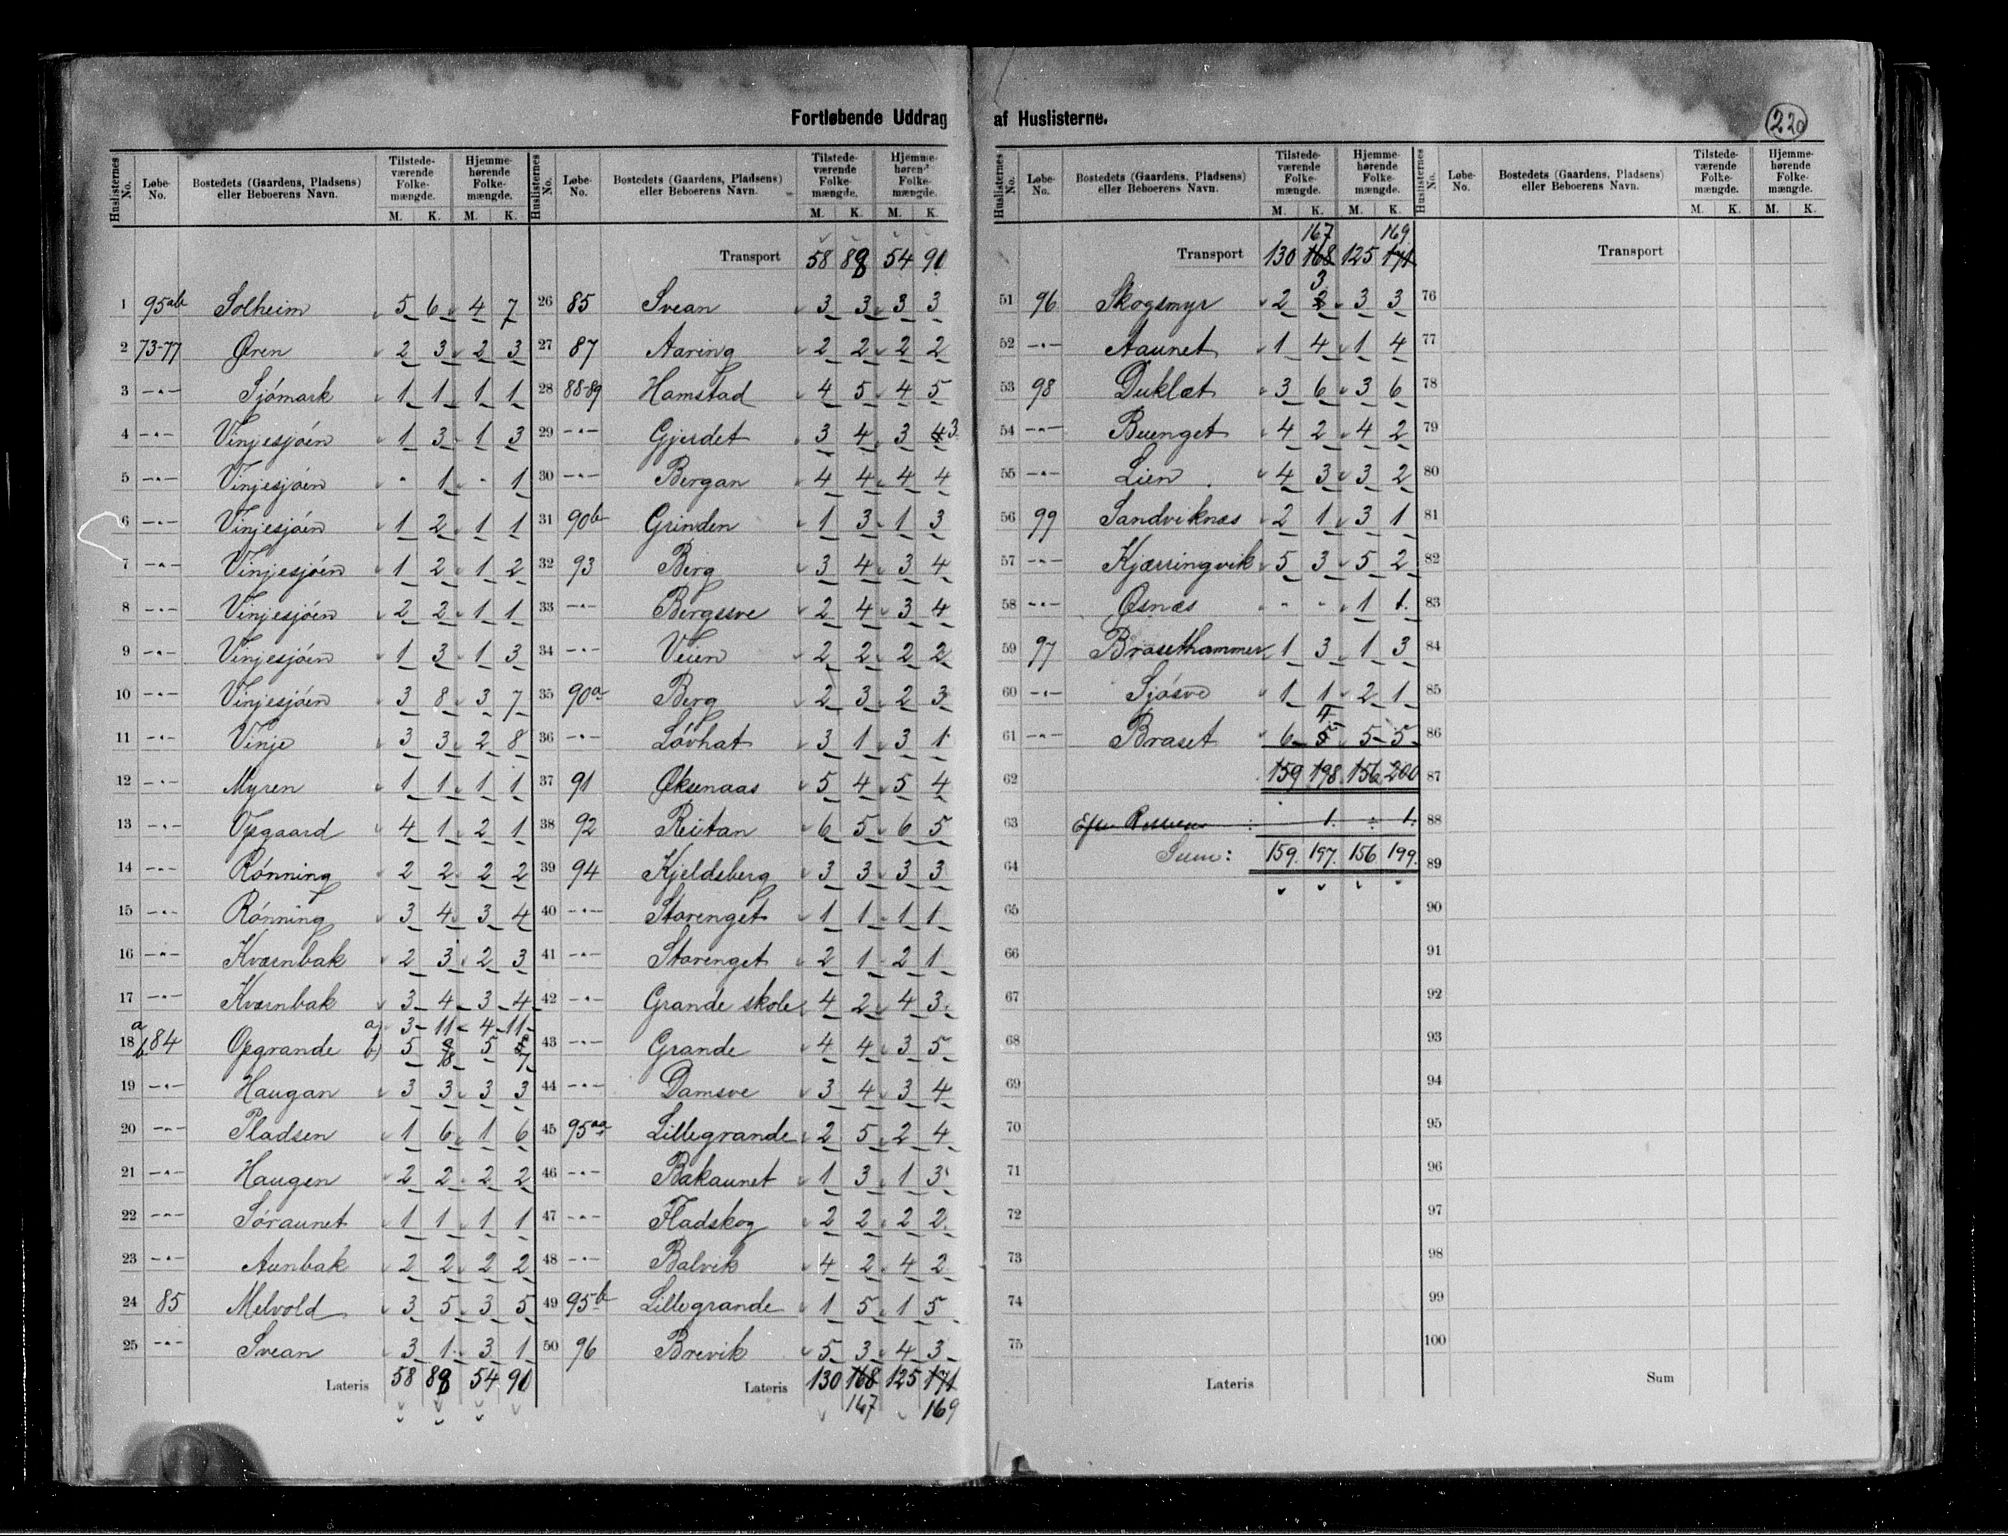 Fortløbende Uddrag af Huslisterne.
220
Huslisternes No. Løbe-No. Bostedets (Gaardens, Pladsens) eller Beboerens Navn. Tilstedeværende Folkemængde. M. K. Hjemmehørende Folkemængde. M. K.
1 95ab Solheim 5 6 4 7
2 73-77 Øren 2 3 2 3
3 -"- Sjömark 1 1 1 1
4 -"- Vinjesjöen 1 3 1 3
5 -"- Vinjesjöen - 1 - 1
6 -"- Vinjesjöen 1 2 1 1
7 -"- Vinjesjöen 1 2 1 2
8 -"- Vinjesjöen 2 2 1 1
9 -"- Vinjesjöen 1 3 1 3
10 -"- Vinjesjöen 3 8 3 7
11 -"- Vinje 3 3 2 8
12 -"- Myren 1 1 1 1
13 -"- Opgaard 4 1 2 1
14 -"- Rönning 2 2 2 2
15 -"- Rönning 3 4 3 4
16 -"- Kværnbak 2 3 2 3
17 -"- Kværnbak 3 4 3 4
a a) 3 11 4 11
18 b 84 Opgrande b) 5 8 5 7
19 -"- Haugan 3 3 3 3
20 -"- Pladsen 1 6 1 6
21 -"- Haugen 2 2 2 2
22 -"- Söraunet 1 1 1 1
23 -"- Aunbak 2 2 2 2
24 85 Melvold 3 5 3 5
25 -"- Svean 3 1 3 1
Lateris 58 88 54 90
Huslisternes No. Løbe-No. Bostedets (Gaardens, Pladsens) eller Beboerens Navn. Tilstedeværende Folkemængde. M. K. Hjemmehørende Folkemængde. M. K.
Transport 58 88 54 90
26 85 Svean 3 3 3 3
27 87 Aaring 2 2 2 2
28 88-89 Hamstad 4 5 4 5
29 -"- Gjerdet 3 4 3 4 3
30 -"- Bergan 4 4 4 4
31 90b Grinden 1 3 1 3
32 93 Berg 3 4 3 4
33 -"- Bergssve 2 4 3 4
34 -"- Veien 2 2 2 2
35 90a Berg 2 3 2 3
36 -"- Lövhat 3 1 3 1
37 91 Øksenaas 5 4 5 4
38 92 Reitan 6 5 6 5
39 94 Kjeldsberg 3 3 3 3
40 -"- Storenget 1 1 1 1
41 -"- Storenget 2 1 2 1
42 -"- Grande skole 4 2 4 3
43 -"- Grande 4 4 3 5
44 -"- Damsve 3 4 3 4
45 95aa Lillegrande 2 5 2 4
46 -"- Bakaunet 1 3 1 3
47 -"- Fladskog 2 2 2 2
48 -"- Balvik 4 2 4 2
49 95b Lillegrande 1 5 1 5
50 96 Brevik 5 3 4 3
Lateris 130 168 125 171
167 169
Huslisternes No. Løbe-No. Bostedets (Gaardens, Pladsens) eller Beboerens Navn. Tilstedeværende Folkemængde. M. K. Hjemmehørende Folkemængde. M. K.
167 169
Transport 130 168 125 171
3
51 96 Skogsmyr 2 2 3 3
52 -"- Aaunet 1 4 1 4
53 98 Duklæt 3 6 3 6
54 -"- Buenget 4 2 4 2
55 -"- Lien 4 3 3 2
56 99 Sandviknæs 2 1 3 1
57 -"- Kjærringvik 5 3 5 2
58 -"- Øsnæs - - 1 1
59 97 Brasethammer 1 3 1 3
60 -"- Sjösve 1 1 2 1
4
61 -"- Braset 6 5 5 5
62 159 198 156 200
63 1. 1.
64 Sum: 159. 197. 156 199.
65
66
67
68
69
70
71
72
73
74
75
Lateris
Huslisternes No. Løbe-No. Bostedets (Gaardens, Pladsens) eller Beboerens Navn. Tilstedeværende Folkemængde. M. K. Hjemmehørende Folkemængde. M. K.
Transport
76
77
78
79
80
81
82
83
84
85
86
87
88
89
90
91
92
93
94
95
96
97
98
99
100
Sum